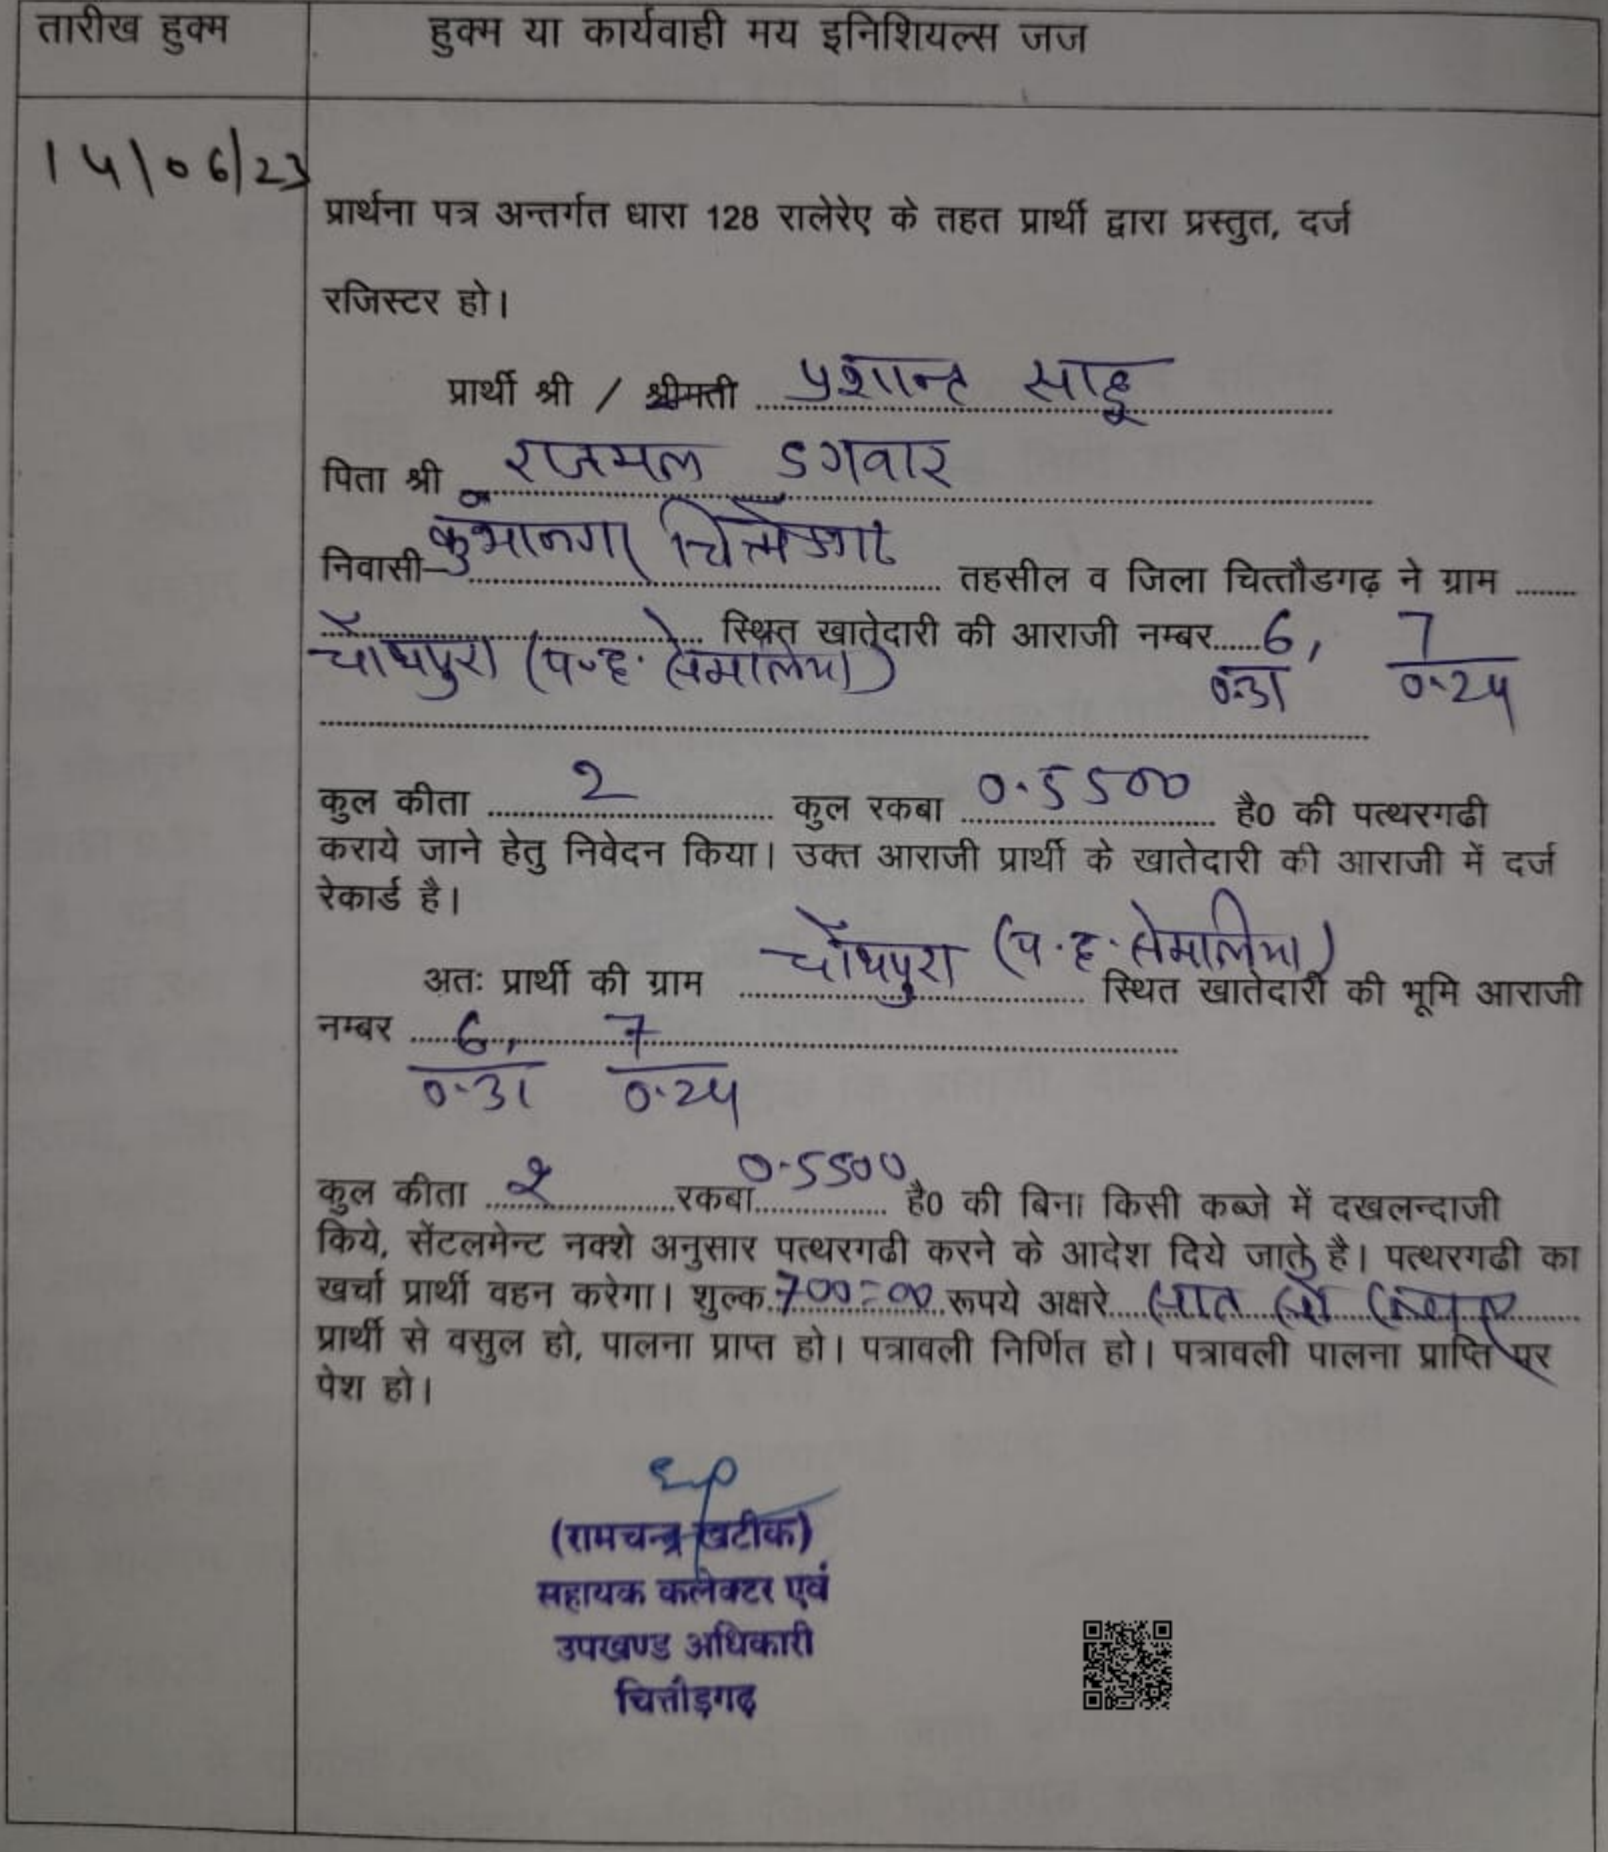 तारीख हुक्म
हुक्म या कार्यवाही मय इनिशियल्स जज
14/06/23
प्रार्थना पत्र अन्तर्गत धारा 128 रालेरेए के तहत प्रार्थी द्वारा प्रस्तुत, दर्ज
रजिस्टर हो।
प्रार्थी श्री / श्रीमती प्रशान्त साहू
पिता श्री राजमल डगवार
निवासी कुंभानगर चित्तौडगढ तहसील व जिला चित्तौडगढ़ ने ग्राम ........
.......... स्थित खातेदारी की आराजी नम्बर......6, 7
चौंथपुरा (प.ह. सेमालिया) 0.31 0.24
कुल कीता ........2........ कुल रकबा 0.5500 है0 की पत्थरगढी
कराये जाने हेतु निवेदन किया। उक्त आराजी प्रार्थी के खातेदारी की आराजी में दर्ज
रेकार्ड है।
अतः प्रार्थी की ग्राम चौंथपुरा (प.ह. सेमालिया) स्थित खातेदारी की भूमि आराजी
नम्बर ......6, 7
0.31 0.24
कुल कीता ....2.... रकबा 0.5500 है0 की बिना किसी कब्जे में दखलन्दाजी
किये, सेंटलमेन्ट नक्शे अनुसार पत्थरगढी करने के आदेश दिये जाते है। पत्थरगढी का
खर्चा प्रार्थी वहन करेगा। शुल्क..700=00..रूपये अक्षरे....सात सौ
प्रार्थी से वसुल हो, पालना प्राप्त हो। पत्रावली निर्णित हो। पत्रावली पालना प्राप्ति पर
पेश हो।
(रामचन्द्र खटीक)
सहायक कलेक्टर एवं
उपखण्ड अधिकारी
चित्तौड़गढ़